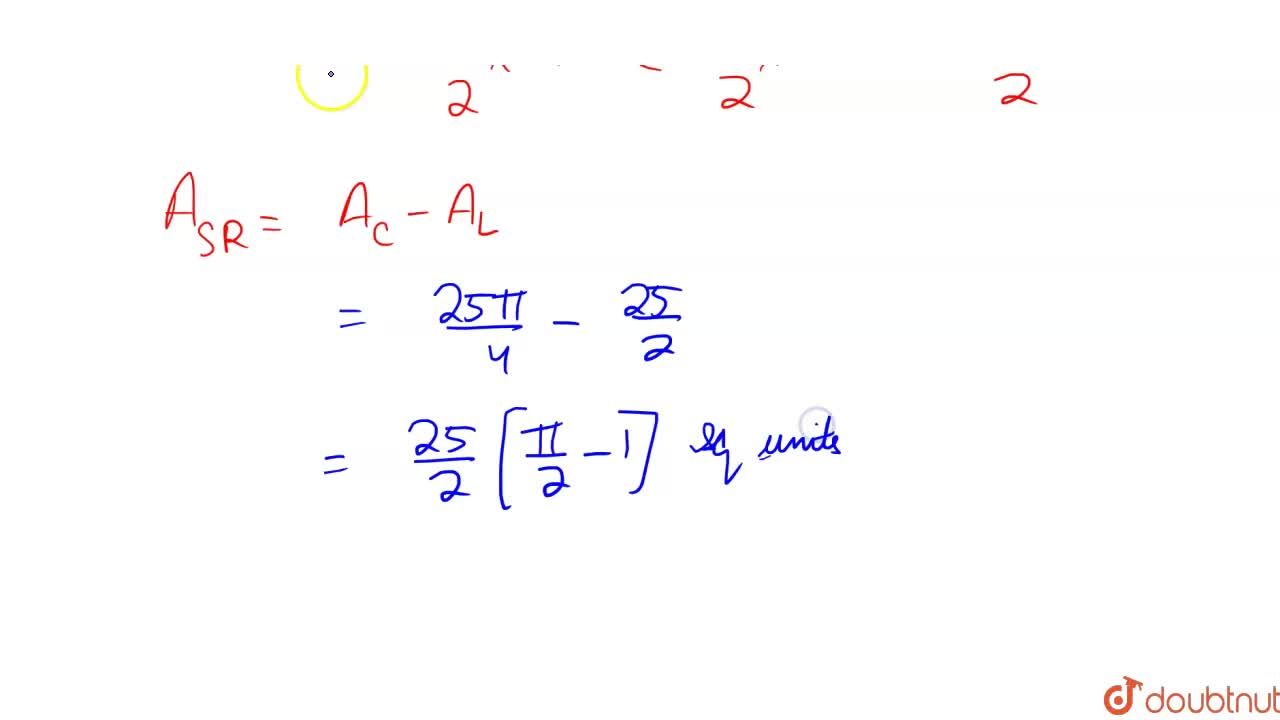 2 2 2
A_SR = A_C - A_L
= 25π/4 - 25/2
= 25/2 [π/2 - 1] sq units
doubtnut